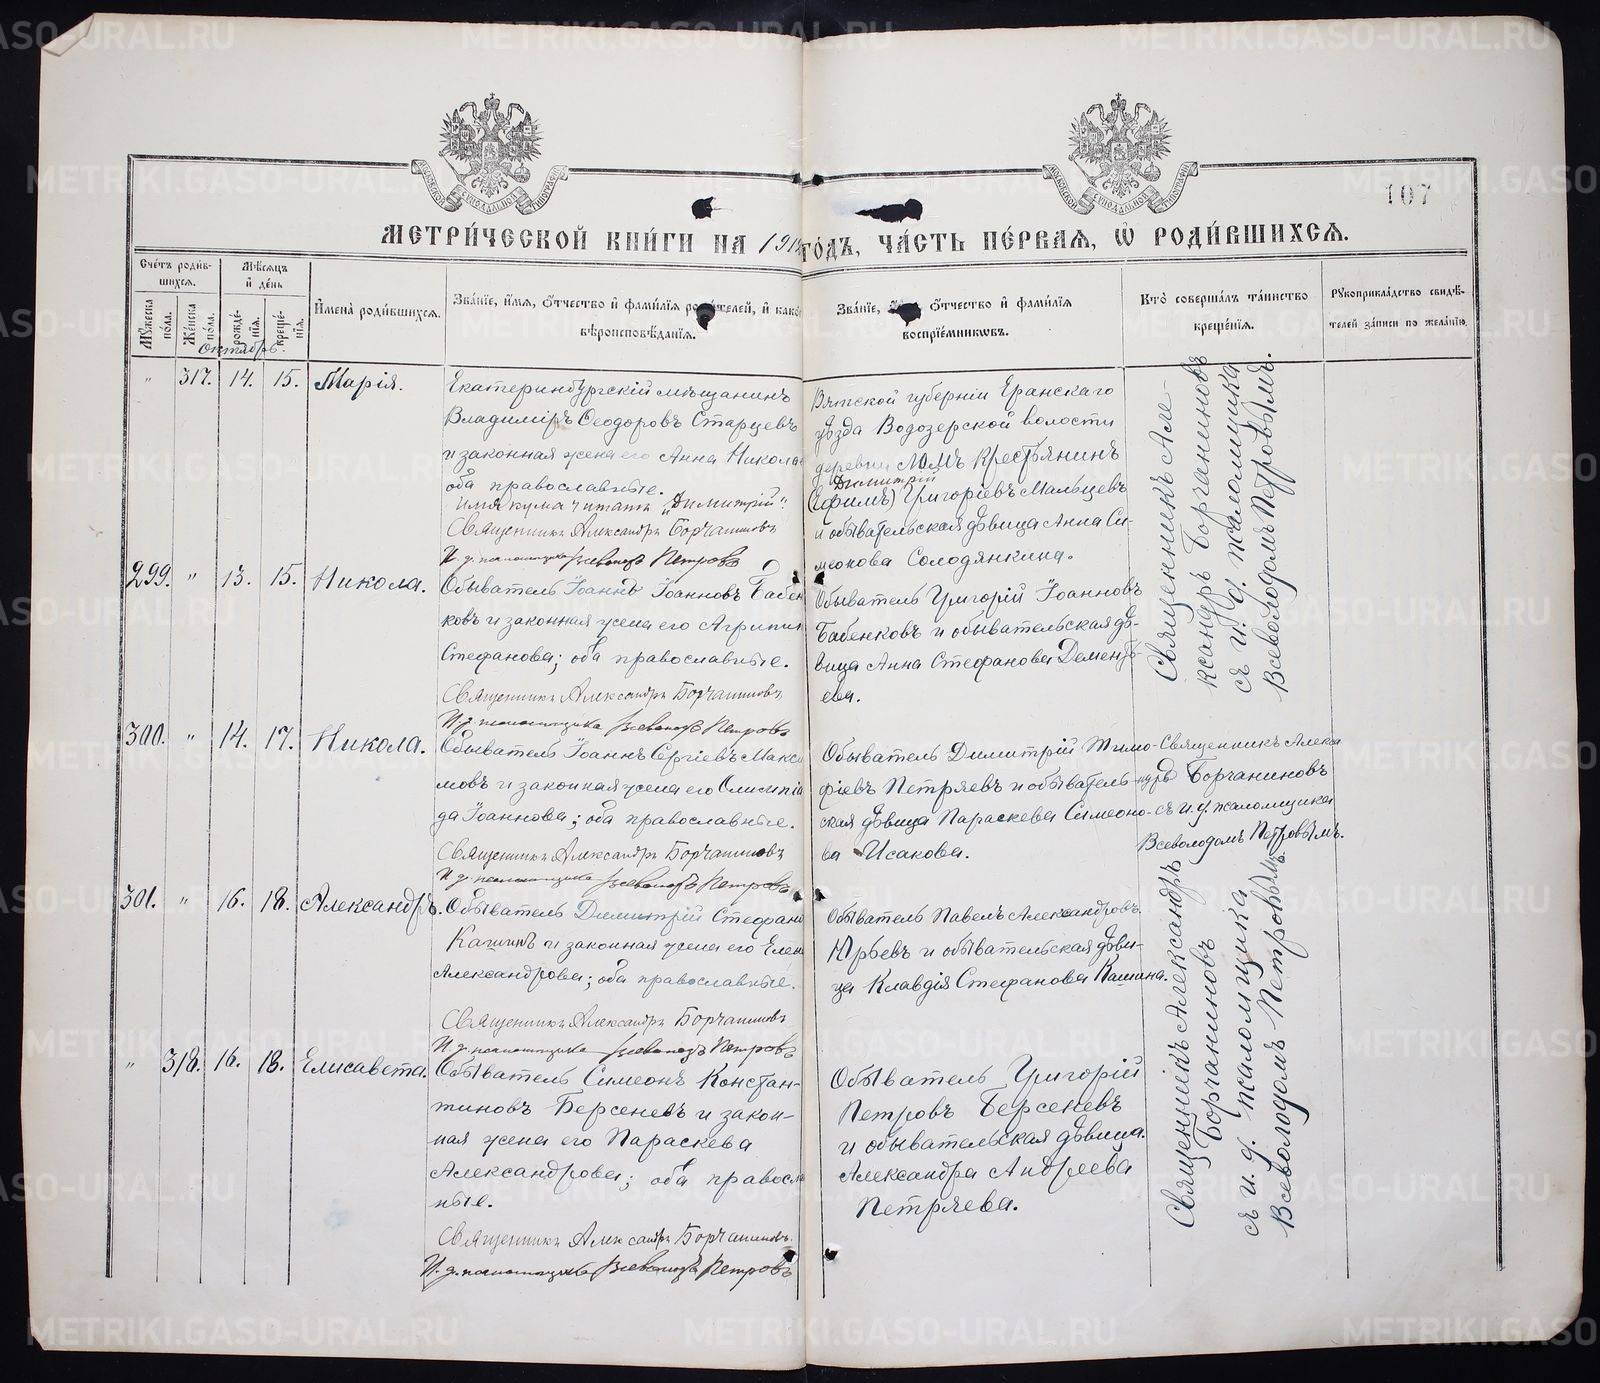 107
МЕТРИЧЕСКОЙ КНИГИ НА 191 ГОДЪ, ЧАСТЬ ПЕРВАЯ, Ѡ РОДИВШИХСЯ.
Счетъ родив-
шихся.
Мѣсяцъ
и день
Мужеска пола.
Женска пола.
рожде-
нія.
креще-
нія.
Имена родившихся.
Званіе, имя, отчество и фамилія родителей, и какого
вѣроисповѣданія.
Званіе, имя, отчество и фамилія
воспріемниковъ.
Кто совершалъ таинство
крещенія.
Рукоприкладство свидѣ-
телей записи по желанію.
октябрь.
" 317. 14. 15. Марія.
Екатеринбургскій мѣщанинъ
Владиміръ Ѳеодоровъ Старцевъ
и законная жена его Анна Никола
оба православные.
имя кума читать „Димитрій".
Священникъ Александръ Борчаниновъ
И. д. псаломщика Всеволодъ Петровъ
Вятской губерніи Яранскаго
уѣзда Водозерской волости
деревни крестьянинъ
Димитрій
(Ефимъ) Григоріевъ Мальцевъ
и обывательская дѣвица Анна Си-
меонова Солодянкина.
Священникъ Але-
ксандръ Борчаниновъ
съ и. д. псаломщика
Всеволодомъ Петровымъ.
299. " 13. 15. Никола.
Обыватель Іоаннъ Іоанновъ Бабен
ковъ и законная жена его Агрипин
Стефанова; оба православные.
Священникъ Александръ Борчаниновъ
И. д. псаломщика Всеволодъ Петровъ
Обыватель Григорій Іоанновъ
Бабенковъ и обывательская дѣ-
вица Анна Стефанова Дементь-
ева.
300. " 14. 17. Никола.
Обыватель Іоаннъ Сергіевъ Макси
мовъ и законная жена его Олимпіа
да Іоаннова; оба православные.
Священникъ Александръ Борчаниновъ
И. д. псаломщика Всеволодъ Петровъ
Обыватель Димитрій Тимо-
фіевъ Петряевъ и обыватель-
ская дѣвица Параскева Симеоно-
ва Исакова.
Священникъ Алекса
ндръ Борчаниновъ
съ и. д. псаломщика
Всеволодомъ Петровымъ.
301. " 16. 18. Александръ.
Обыватель Димитрій Стефано
Кашинъ и законная жена его Елена
Александрова; оба православные.
Священникъ Александръ Борчаниновъ
И. д. псаломщика Всеволодъ Петровъ
Обыватель Павелъ Александровъ
Юрьевъ и обывательская дѣви-
ца Клавдія Стефанова Кашина.
Священникъ Александръ
Борчаниновъ
съ и. д. псаломщика
Всеволодомъ Петровымъ.
" 318. 16. 18. Елисавета.
Обыватель Симеонъ Констан-
тиновъ Берсеневъ и закон-
ная жена его Параскева
Александрова; оба правосла
ные.
Священникъ Александръ Борчаниновъ.
И. д. псаломщика Всеволодъ Петровъ
Обыватель Григорій
Петровъ Берсеневъ
и обывательская дѣвица
Александра Андреева
Петряева.